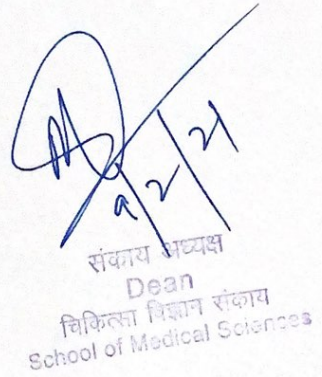 9/2/21
संकाय अध्यक्ष
Dean
चिकित्सा विज्ञान संकाय
School of Medical Sciences